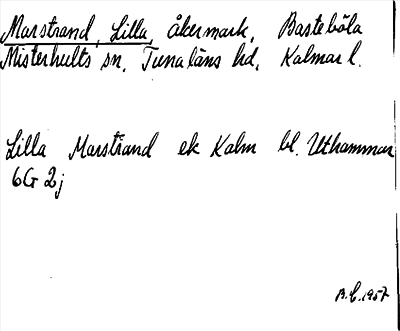 Marstrand, Lilla, åkermark, Basteböla
Misterhults sn, Tunaläns hd, Kalmar l.
Lilla Marstrand ek Kalm bl. Uthammar
6G 2j
B.L. 1957